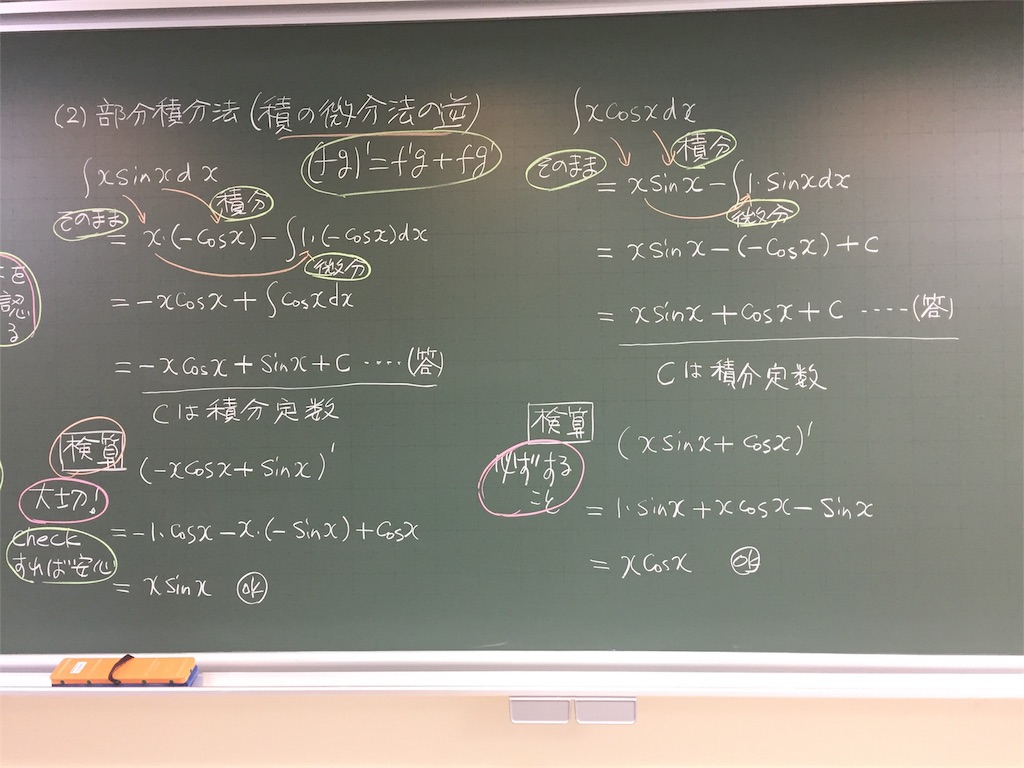 (2) 部分積分法 (積の微分法の逆)
(fg)' = f'g + fg'
∫x sinx dx
そのまま
積分
= x・(-cosx) - ∫1・(-cosx)dx
微分
= -xcosx + ∫cosxdx
= -xcosx + sinx + C ‥‥(答)
Cは積分定数
検算
大切!
check
すれば安心
(-xcosx + sinx)'
= -1・cosx - x・(-sinx) + cosx
= xsinx OK
を
認
る
∫xcosxdx
そのまま
積分
= xsinx - ∫1・sinxdx
微分
= xsinx - (-cosx) + C
= xsinx + cosx + C ‥‥(答)
Cは積分定数
検算
必ずする
こと
(xsinx + cosx)'
= 1・sinx + xcosx - sinx
= xcosx OK